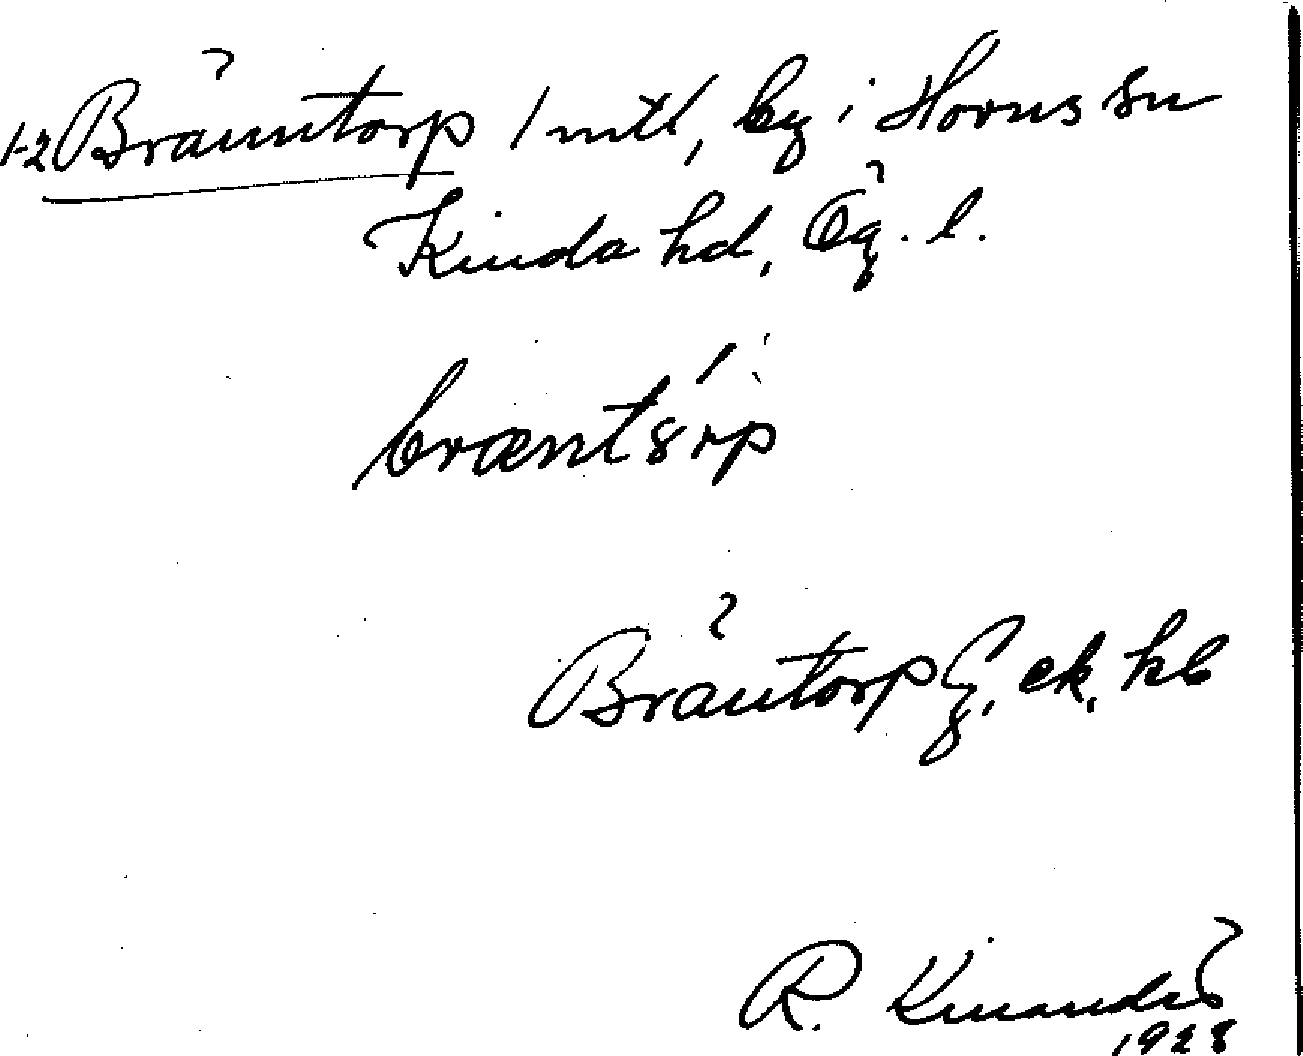 1-2 Bränntorp 1 mtl, by i Horns sn
Kinda hd, Ög. l.
bræntŏ́rp
Bräntorp G, ek, kb
R. Kinander
1928